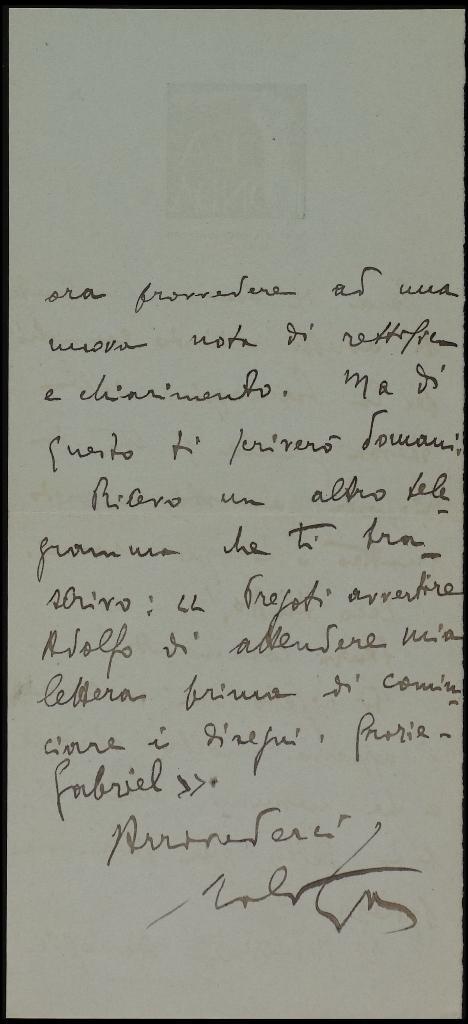 ora provvedere ad una
nuova nota di rettifica
e chiarimento. Ma di
questo ti scriverò domani.
Ricevo un altro tele-
gramma che ti tra-
scrivo: « Pregoti avvertire
Adolfo di attendere mia
lettera prima di comin-
ciare i disegni. Grazie -
Gabriel ».
Arrivederci